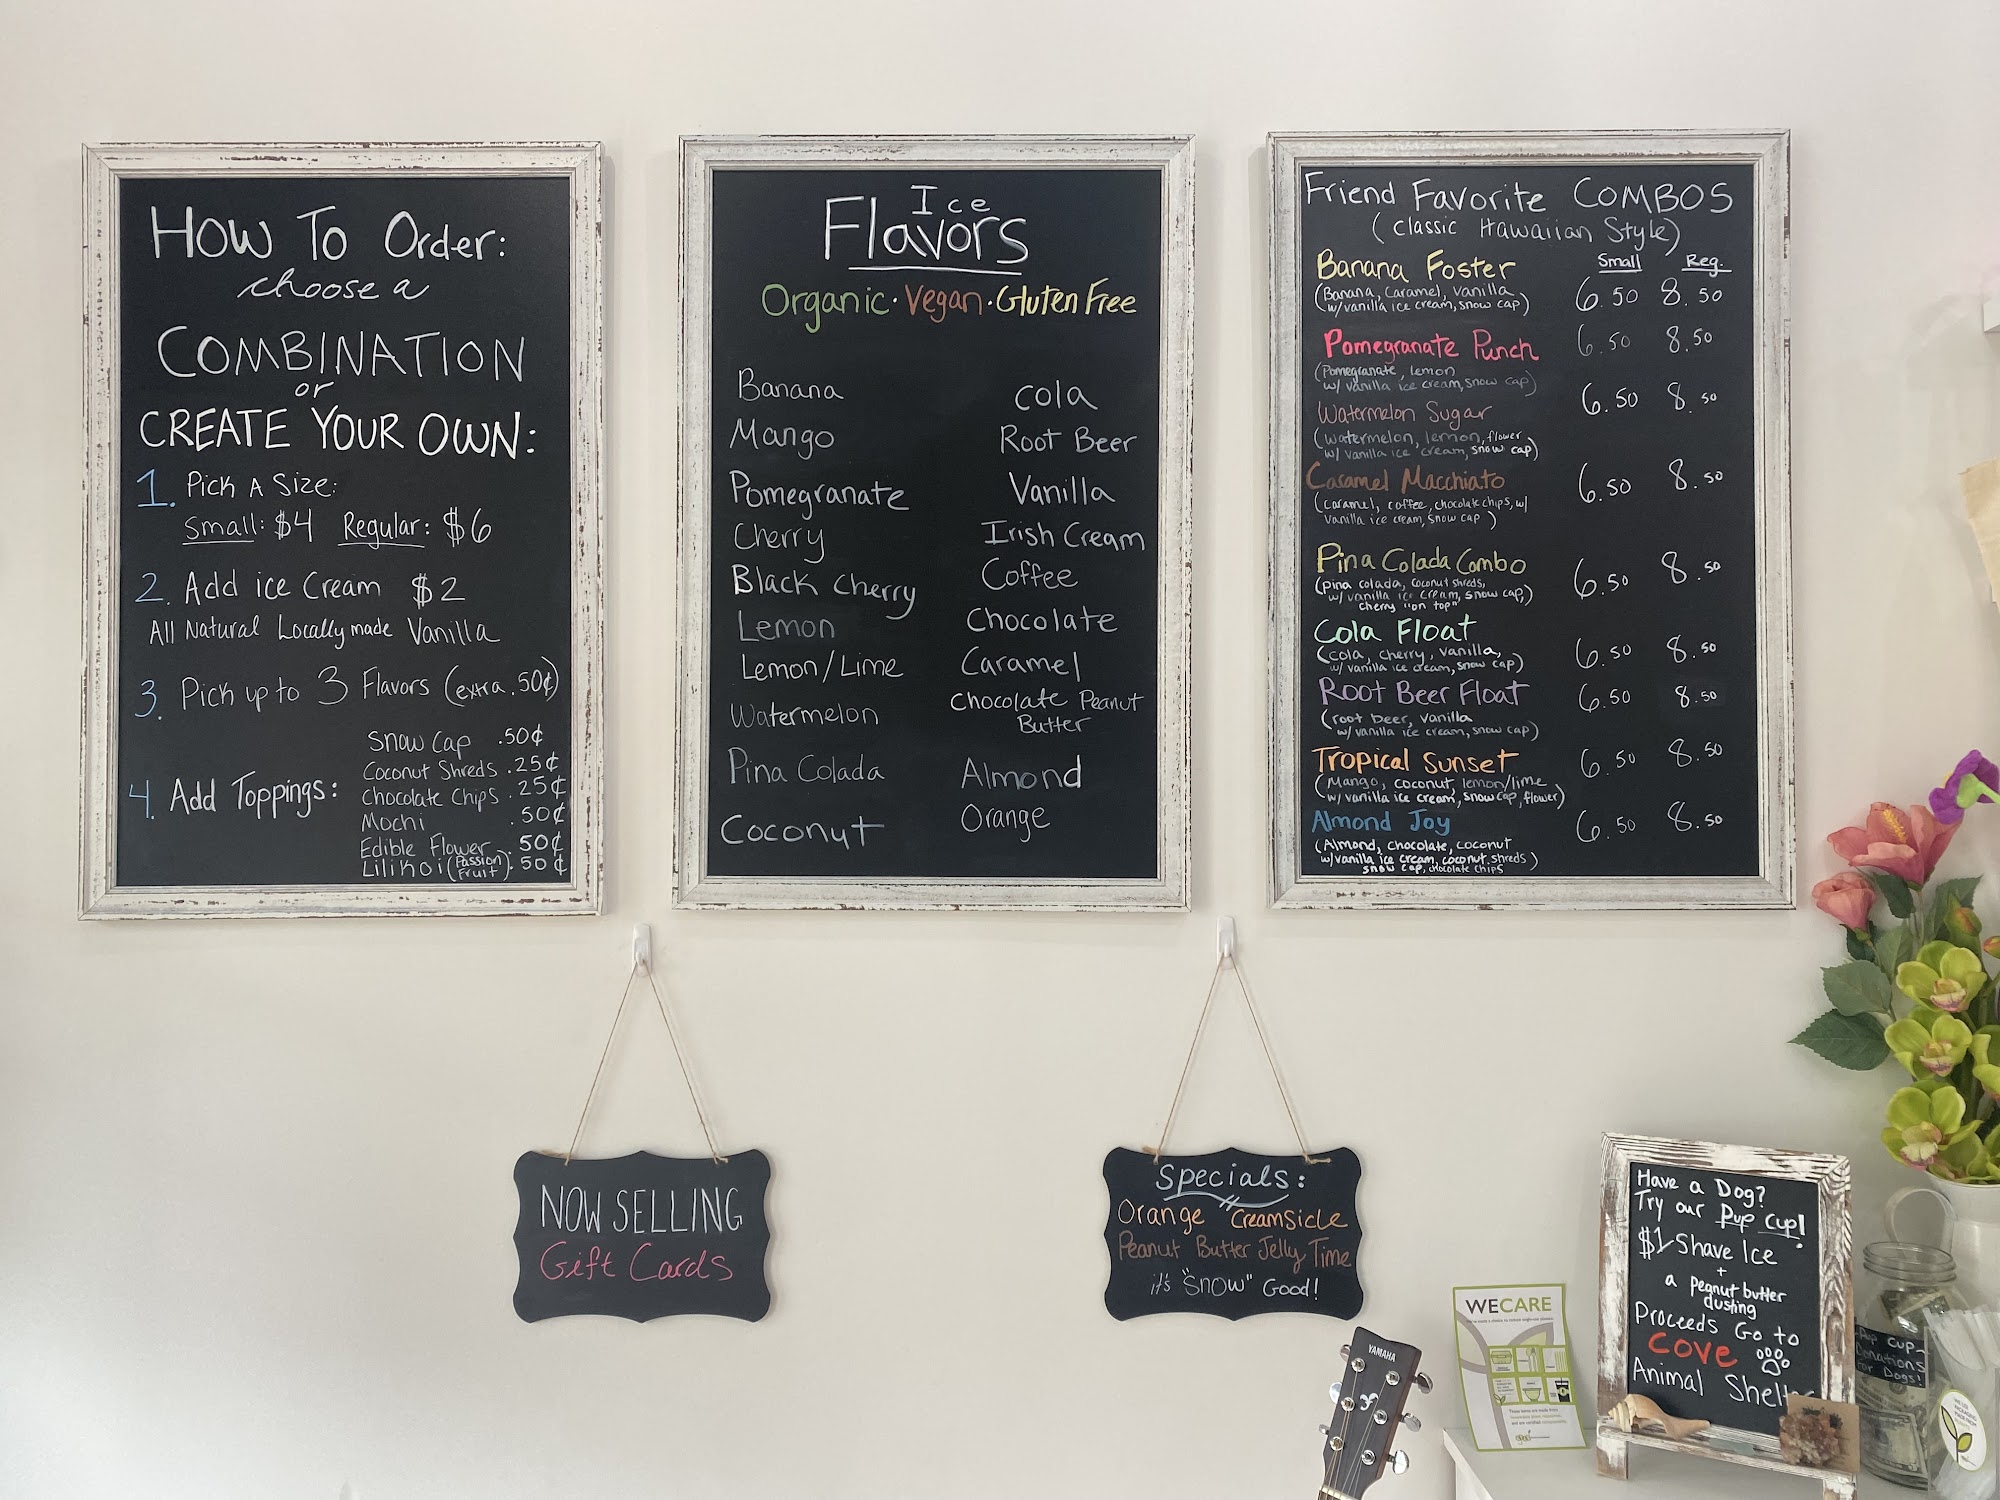 HOW TO Order:
choose a
COMBINATION
or
CREATE YOUR OWN:
1. Pick A Size:
Small: $4 Regular: $6
2. Add ice Cream $2
All Natural Locally made Vanilla
3. Pick up to 3 Flavors (extra .50¢)
4. Add Toppings:
Snow Cap .50¢
Coconut Shreds .25¢
Chocolate Chips .25¢
Mochi .50¢
Edible Flower .50¢
Lilikoi (Passion Fruit) .50¢
Ice
Flavors
Organic · Vegan · Gluten Free
Banana
Mango
Pomegranate
Cherry
Black Cherry
Lemon
Lemon/Lime
Watermelon
Pina Colada
Coconut
Cola
Root Beer
Vanilla
Irish Cream
Coffee
Chocolate
Caramel
Chocolate Peanut
Butter
Almond
Orange
Friend Favorite COMBOS
(Classic Hawaiian Style)
Small Reg.
Banana Foster 6.50 8.50
(Banana, Caramel, Vanilla
w/vanilla ice cream, snow cap)
Pomegranate Punch 6.50 8.50
(Pomegranate, lemon
w/ vanilla ice cream, snow cap)
Watermelon Sugar 6.50 8.50
(watermelon, lemon, flower
w/ vanilla ice cream, snow cap)
Caramel Macchiato 6.50 8.50
(caramel, coffee, chocolate chips, w/
vanilla ice cream, snow cap)
Pina Colada Combo 6.50 8.50
(pina colada, coconut shreds,
w/ vanilla ice cream, snow cap,
cherry "on top")
Cola Float 6.50 8.50
(cola, cherry, vanilla,
w/ vanilla ice cream, snow cap)
Root Beer Float 6.50 8.50
(root beer, vanilla
w/ vanilla ice cream, snow cap)
Tropical Sunset 6.50 8.50
(Mango, coconut, lemon/lime
w/ vanilla ice cream, snow cap, flower)
Almond Joy 6.50 8.50
(Almond, chocolate, coconut
w/vanilla ice cream, coconut shreds)
snow cap, chocolate chips
NOW SELLING
Gift Cards
Specials:
Orange Creamsicle
Peanut Butter Jelly Time
it's "Snow" Good!
YAMAHA
WECARE
Have a Dog?
Try our Pup Cup!
$1 Shave Ice
+
a peanut butter
dusting
Proceeds Go to
COVE
Animal Shelt
Pup Cup
Donations
For Dogs!